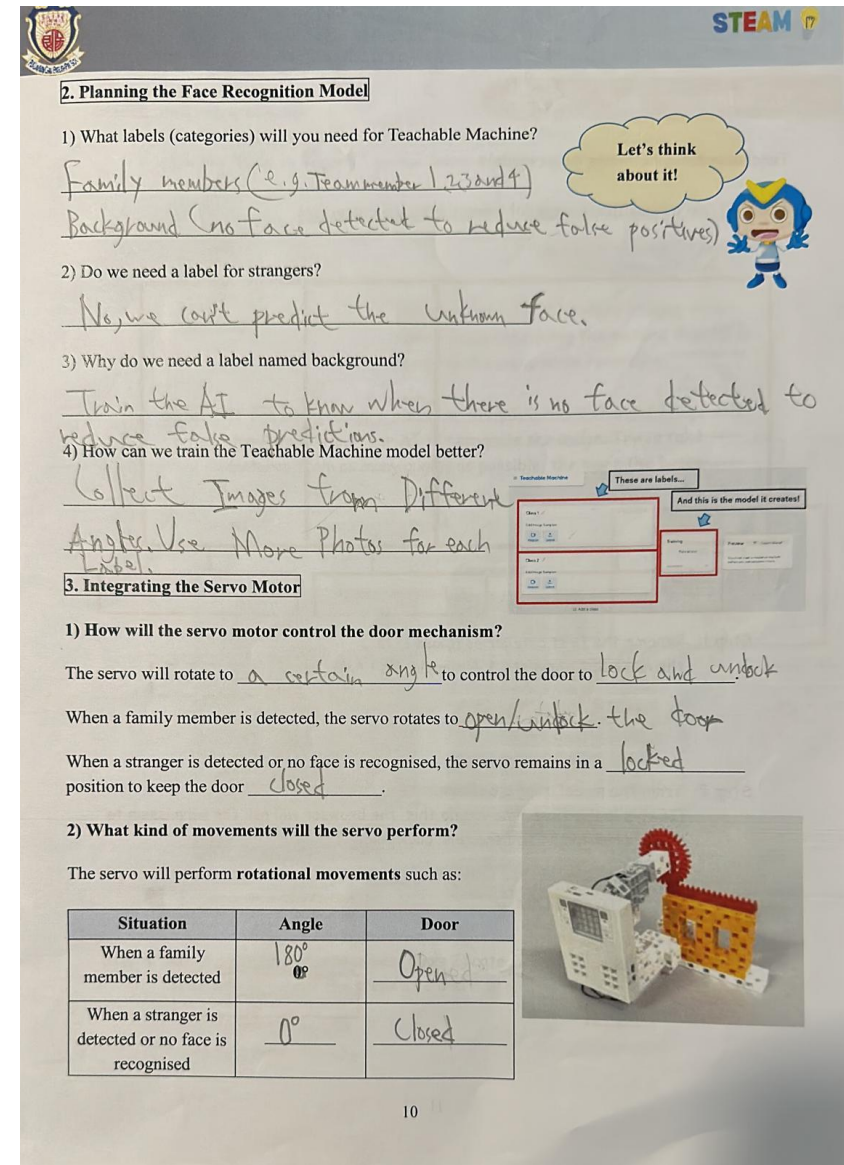 STEAM 17
2. Planning the Face Recognition Model
1) What labels (categories) will you need for Teachable Machine?
Let's think
about it!
Family members (e.g. Team member 1,2,3 and 4)
Background (no face detected to reduce false positives)
2) Do we need a label for strangers?
No, we can't predict the unknown face.
3) Why do we need a label named background?
Train the AI to know when there is no face detected to
reduce false predictions.
4) How can we train the Teachable Machine model better?
Collect Images from Different
Angles. Use More Photos for each
Label.
Teachable Machine
These are labels...
And this is the model it creates!
Class 1
Class 2
Training
Preview
3. Integrating the Servo Motor
1) How will the servo motor control the door mechanism?
The servo will rotate to a certain angle to control the door to lock and unlock.
When a family member is detected, the servo rotates to open/unlock. the door
When a stranger is detected or no face is recognised, the servo remains in a locked
position to keep the door closed.
2) What kind of movements will the servo perform?
The servo will perform rotational movements such as:
Situation Angle Door
When a family
member is detected 180° 0° Open
When a stranger is
detected or no face is
recognised 0° Closed
10